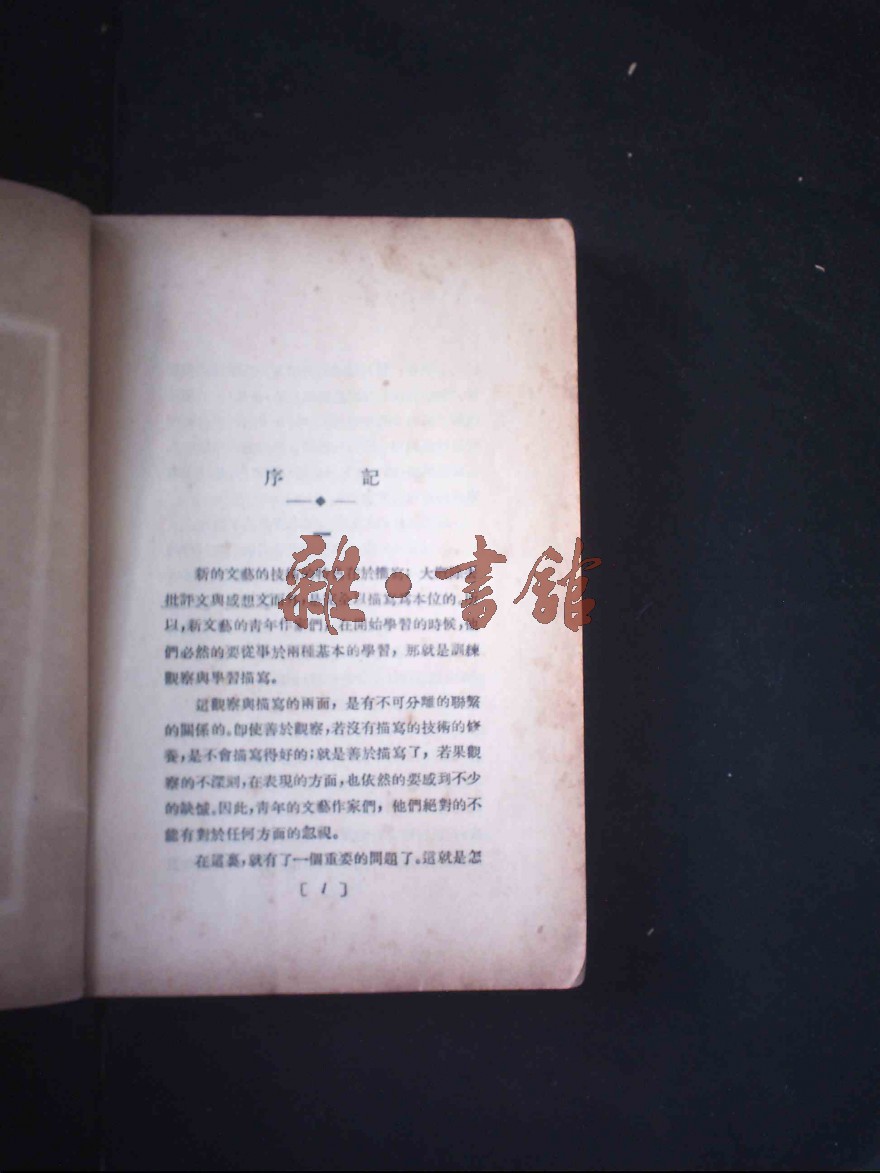 序 記
一
新的文藝的技術
批評文與感想文 描寫爲本位的。
以，新文藝的青年作家們，在開始學習的時候，他
們必然的要從事於兩種基本的學習，那就是訓練
觀察與學習描寫。
這觀察與描寫的兩面，是有不可分離的聯繫
的關係的。即使善於觀察，若沒有描寫的技術的修
養，是不會描寫得好的；就是善於描寫了，若果觀
察的不深刻，在表現的方面，也依然的要感到不少
的缺憾。因此，青年的文藝作家們，他們絕對的不
能有對於任何方面的忽視。
在這裏，就有了一個重要的問題了。這就是怎
〔1〕
雜·書館